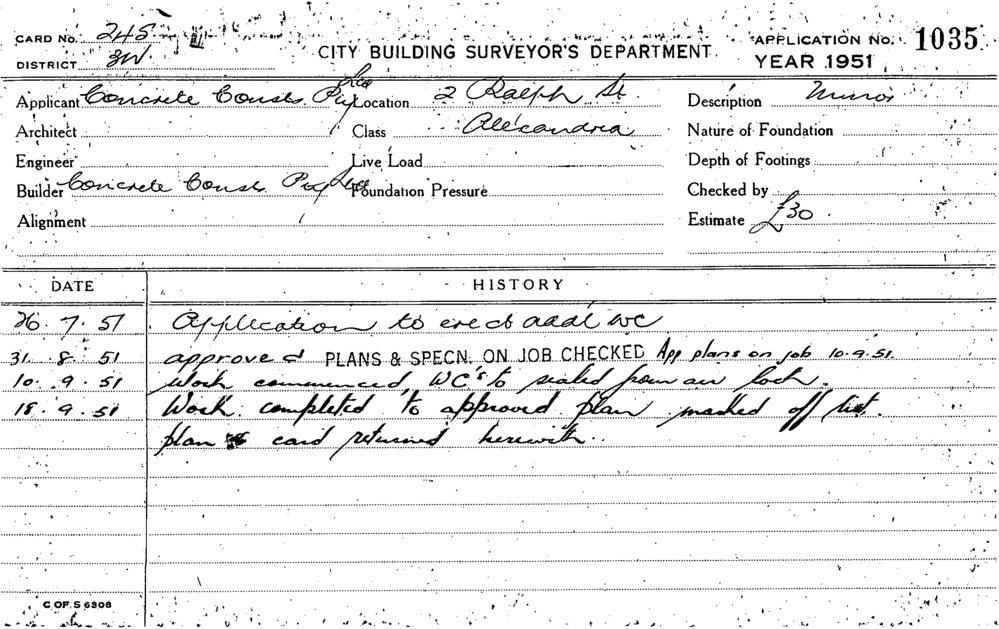 CARD No. 245
CITY BUILDING SURVEYOR'S DEPARTMENT
APPLICATION No. 1035
DISTRICT 3W
YEAR 1951
Applicant Concrete Consts Pty Ltd
Location 2 Ralph St
Description Minor
Architect
Class Alexandria
Nature of Foundation
Engineer
Live Load
Depth of Footings
Builder Concrete Consts Pty Ltd
Foundation Pressure
Checked by
Alignment
Estimate £30
DATE HISTORY
26.7.51 Application to erect addl WC
31.8.51 approved PLANS & SPECN. ON JOB CHECKED App plans on job 10.9.51.
10.9.51 Work commenced, WC's to sealed from air lock.
18.9.51 Work completed to approved plan marked off list.
plan & card returned herewith.
C OF S 6308